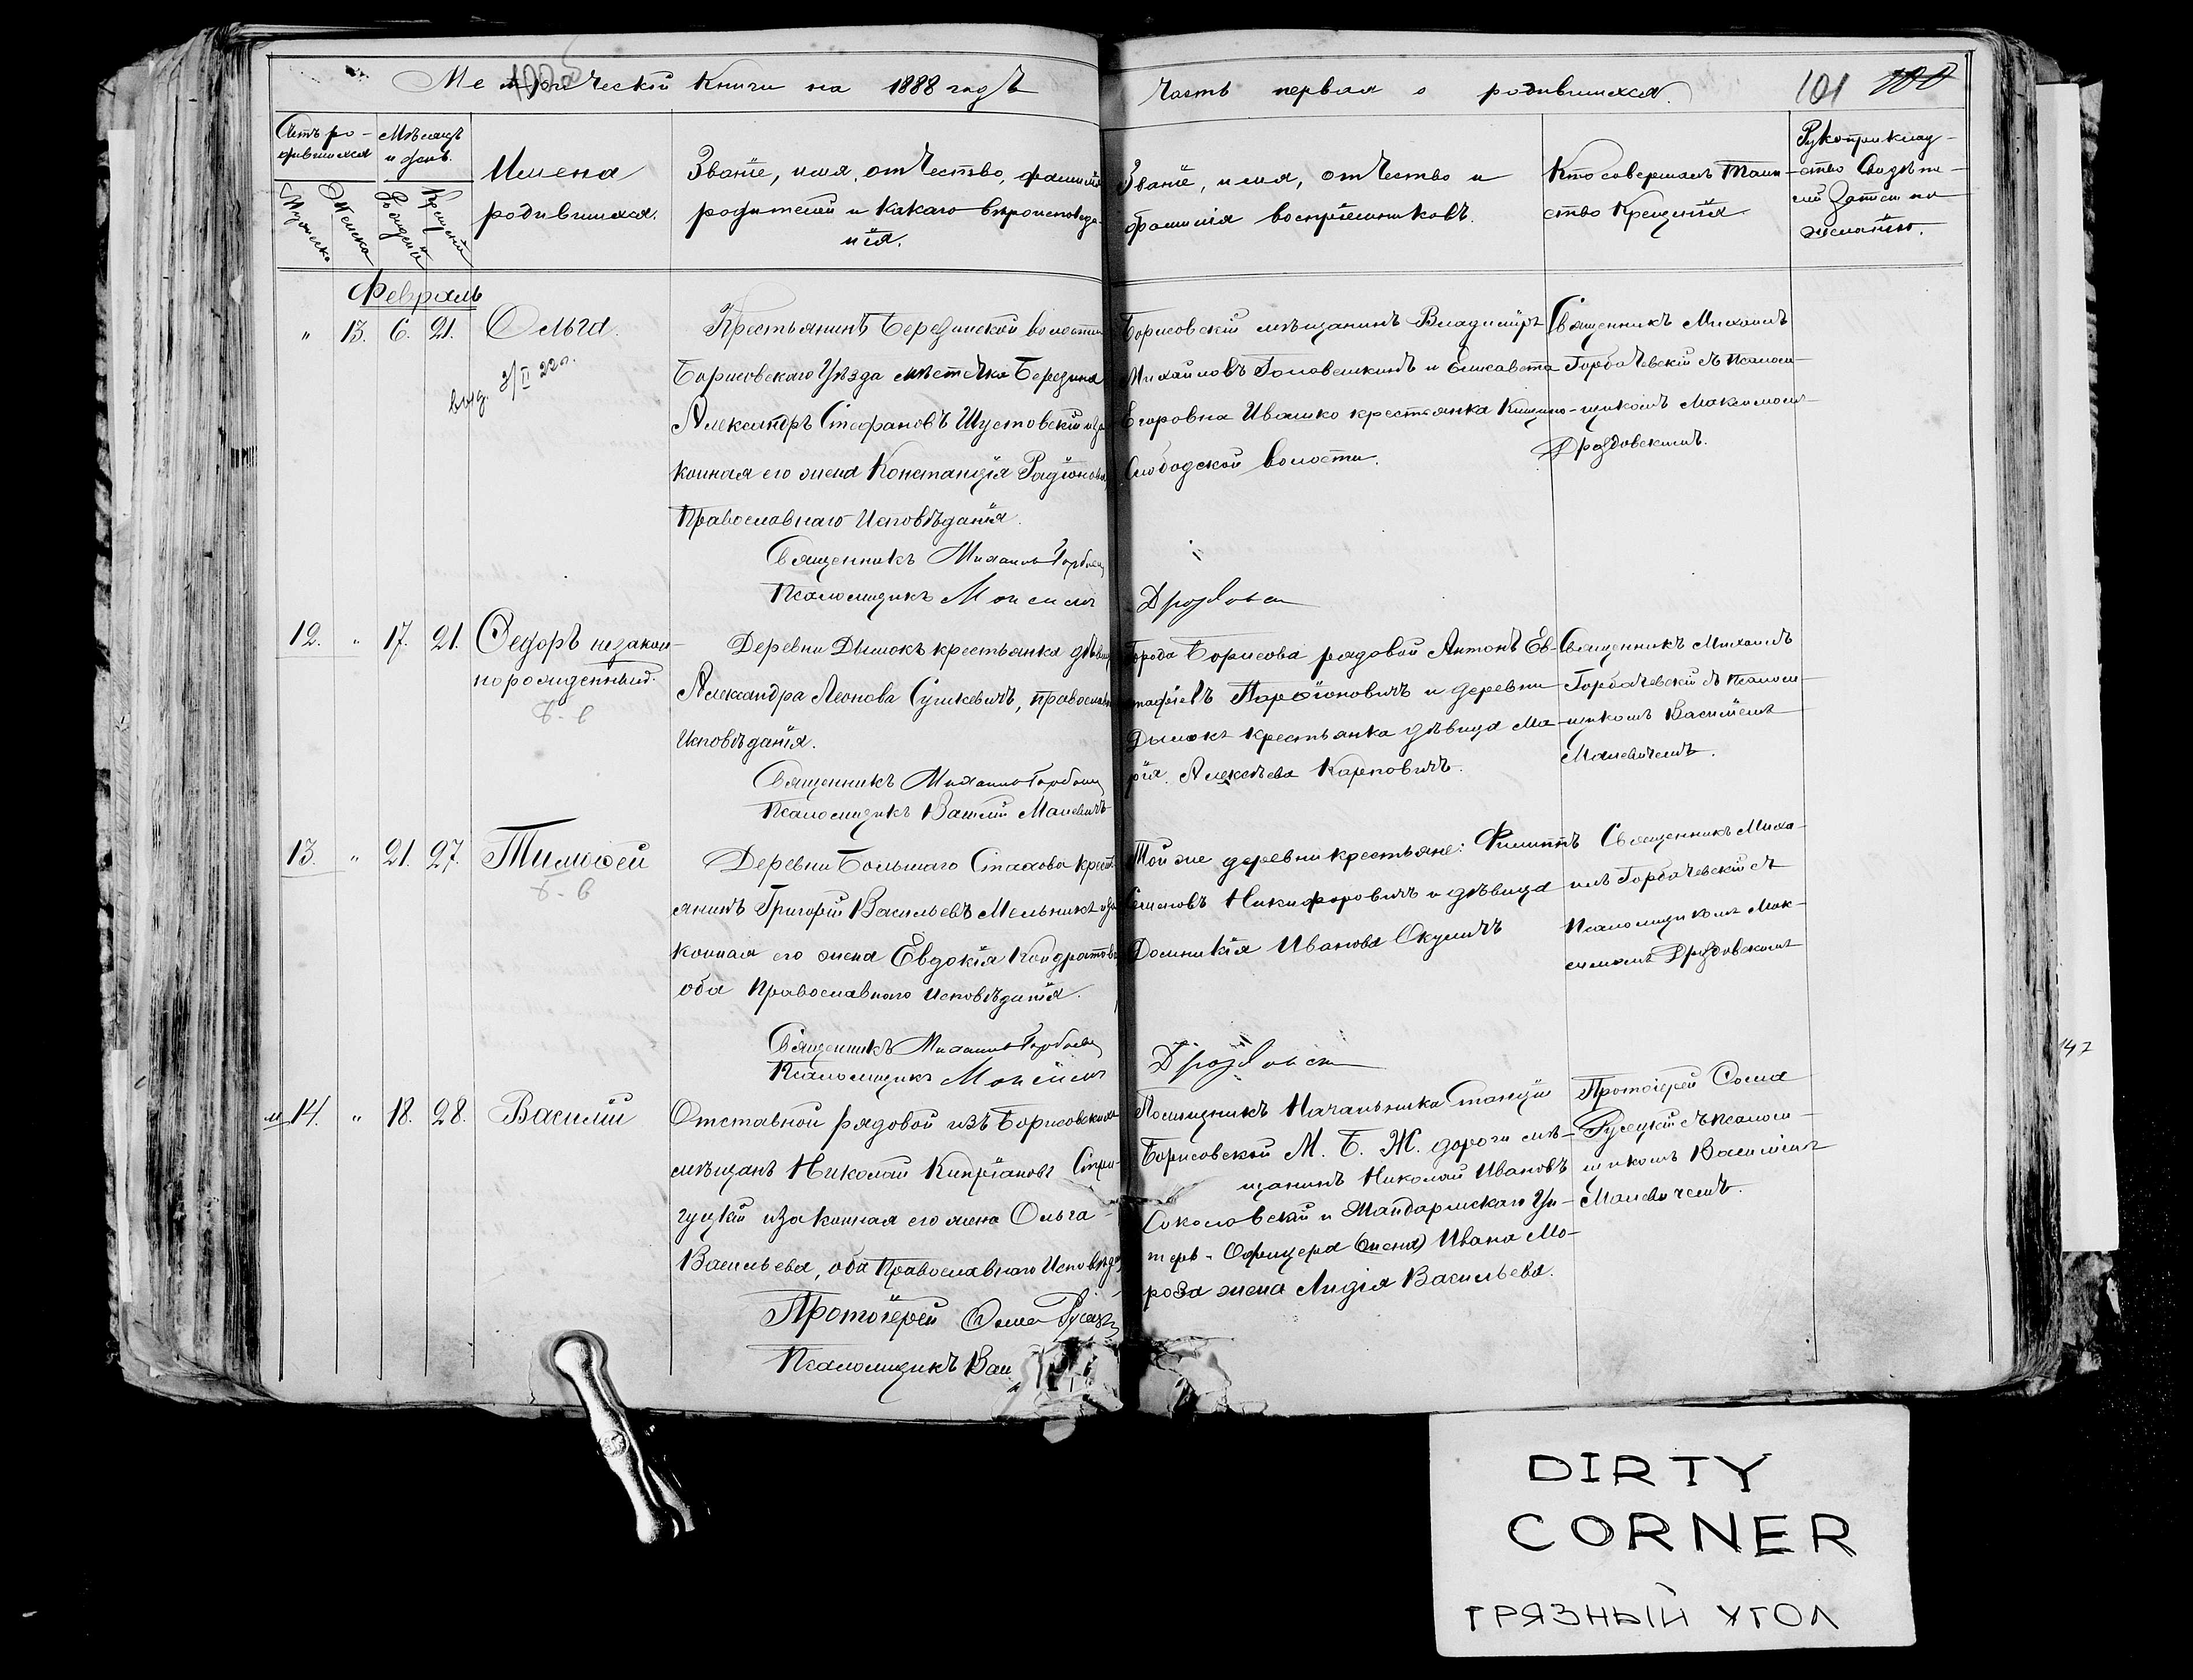 Метрической Книги на 1888 годъ
Часть первая о родившихся.
101 100
Счетъ ро-
дившихся
Мѣсяцъ
и день.
Мужеска
Женска
Рожденія
Крещенія
Имена
родившихся.
Званіе, имя, отчество, фамилія
родителей и какаго вѣроисповѣда-
нія.
Званіе, имя, отчество и
фамилія воспріемниковъ.
Кто совершалъ таин-
ство Крещенія
Рукоприклад-
ство Свидѣте-
лей Записи по
желанію.
Февраль
" 13. 6. 21. Ольга.
выд. 3/II 22 г.
Крестьянинъ Березинской волости
Борисовскаго Уѣзда мѣстечка Березина
Александръ Стефановъ Шустовскій и за-
конная его жена Констанція Радіонова,
Православнаго Исповѣданія.
Священникъ Михаилъ Горбачев
Псаломщикъ Максимъ
Дроздовск
Борисовскій мѣщанинъ Владиміръ
Михайловъ Головешкинъ и Елисавета
Егоровна Ивашко крестьянка Кищино-
Слободской волости.
Священникъ Михаилъ
Горбачевскій съ Псалом-
щикомъ Максимомъ
Дроздовскимъ.
12. " 17. 21. Ѳедоръ незакон-
норожденный.
Деревни Дымокъ крестьянка дѣвица
Александра Леонова Сушкевичъ, православн
Исповѣданія.
Священникъ Михаилъ Горбачев
Псаломщикъ Василій Малевичъ
Города Борисова рядовой Антонъ Ев-
стафіевъ Парѳіоновичъ и деревни
Дымокъ крестьянка дѣвица Ма-
рія Алексѣева Карповичъ.
Священникъ Михаилъ
Горбачевскій съ Псалом-
щикомъ Василіемъ
Малевичемъ.
13. " 21. 27. Тимоѳей
Деревни Большаго Стахова крест-
янинъ Григорій Васильевъ Мельникъ и за-
конная его жена Евдокія Кондратова
оба Православнаго Исповѣданія.
Священникъ Михаилъ Горбачев
Псаломщикъ Максимъ
Дроздовск
Той же деревни крестьяне: Филиппъ
Семеновъ Никифоровичъ и дѣвица
Домникія Иванова Окуличъ
Священникъ Миха-
илъ Горбачевскій съ
Псаломщикомъ Мак-
симомъ Дроздовскимъ
14. " 18. 28. Василій
Отставной рядовой изъ Борисовскихъ
мѣщанъ Николай Кипріановъ Стри-
гуцкій и законная его жена Ольга
Васильева, оба Православнаго Исповѣда
Протоіерей Ѳома Русецк
Псаломщикъ Вас
Помощникъ Начальника Станціи
Борисовской М. Б. Ж. дороги мѣ-
щанинъ Николай Ивановъ
Соколовскій и Жандармскаго Ун-
теръ-Офицера (жена) Ивана Мо-
роза жена Лидія Васильева.
Протоіерей Ѳома
Русецкій съ псалом-
щикомъ Василіемъ
Малевичемъ.
147
DIRTY
CORNER
ГРЯЗНЫЙ УГОЛ